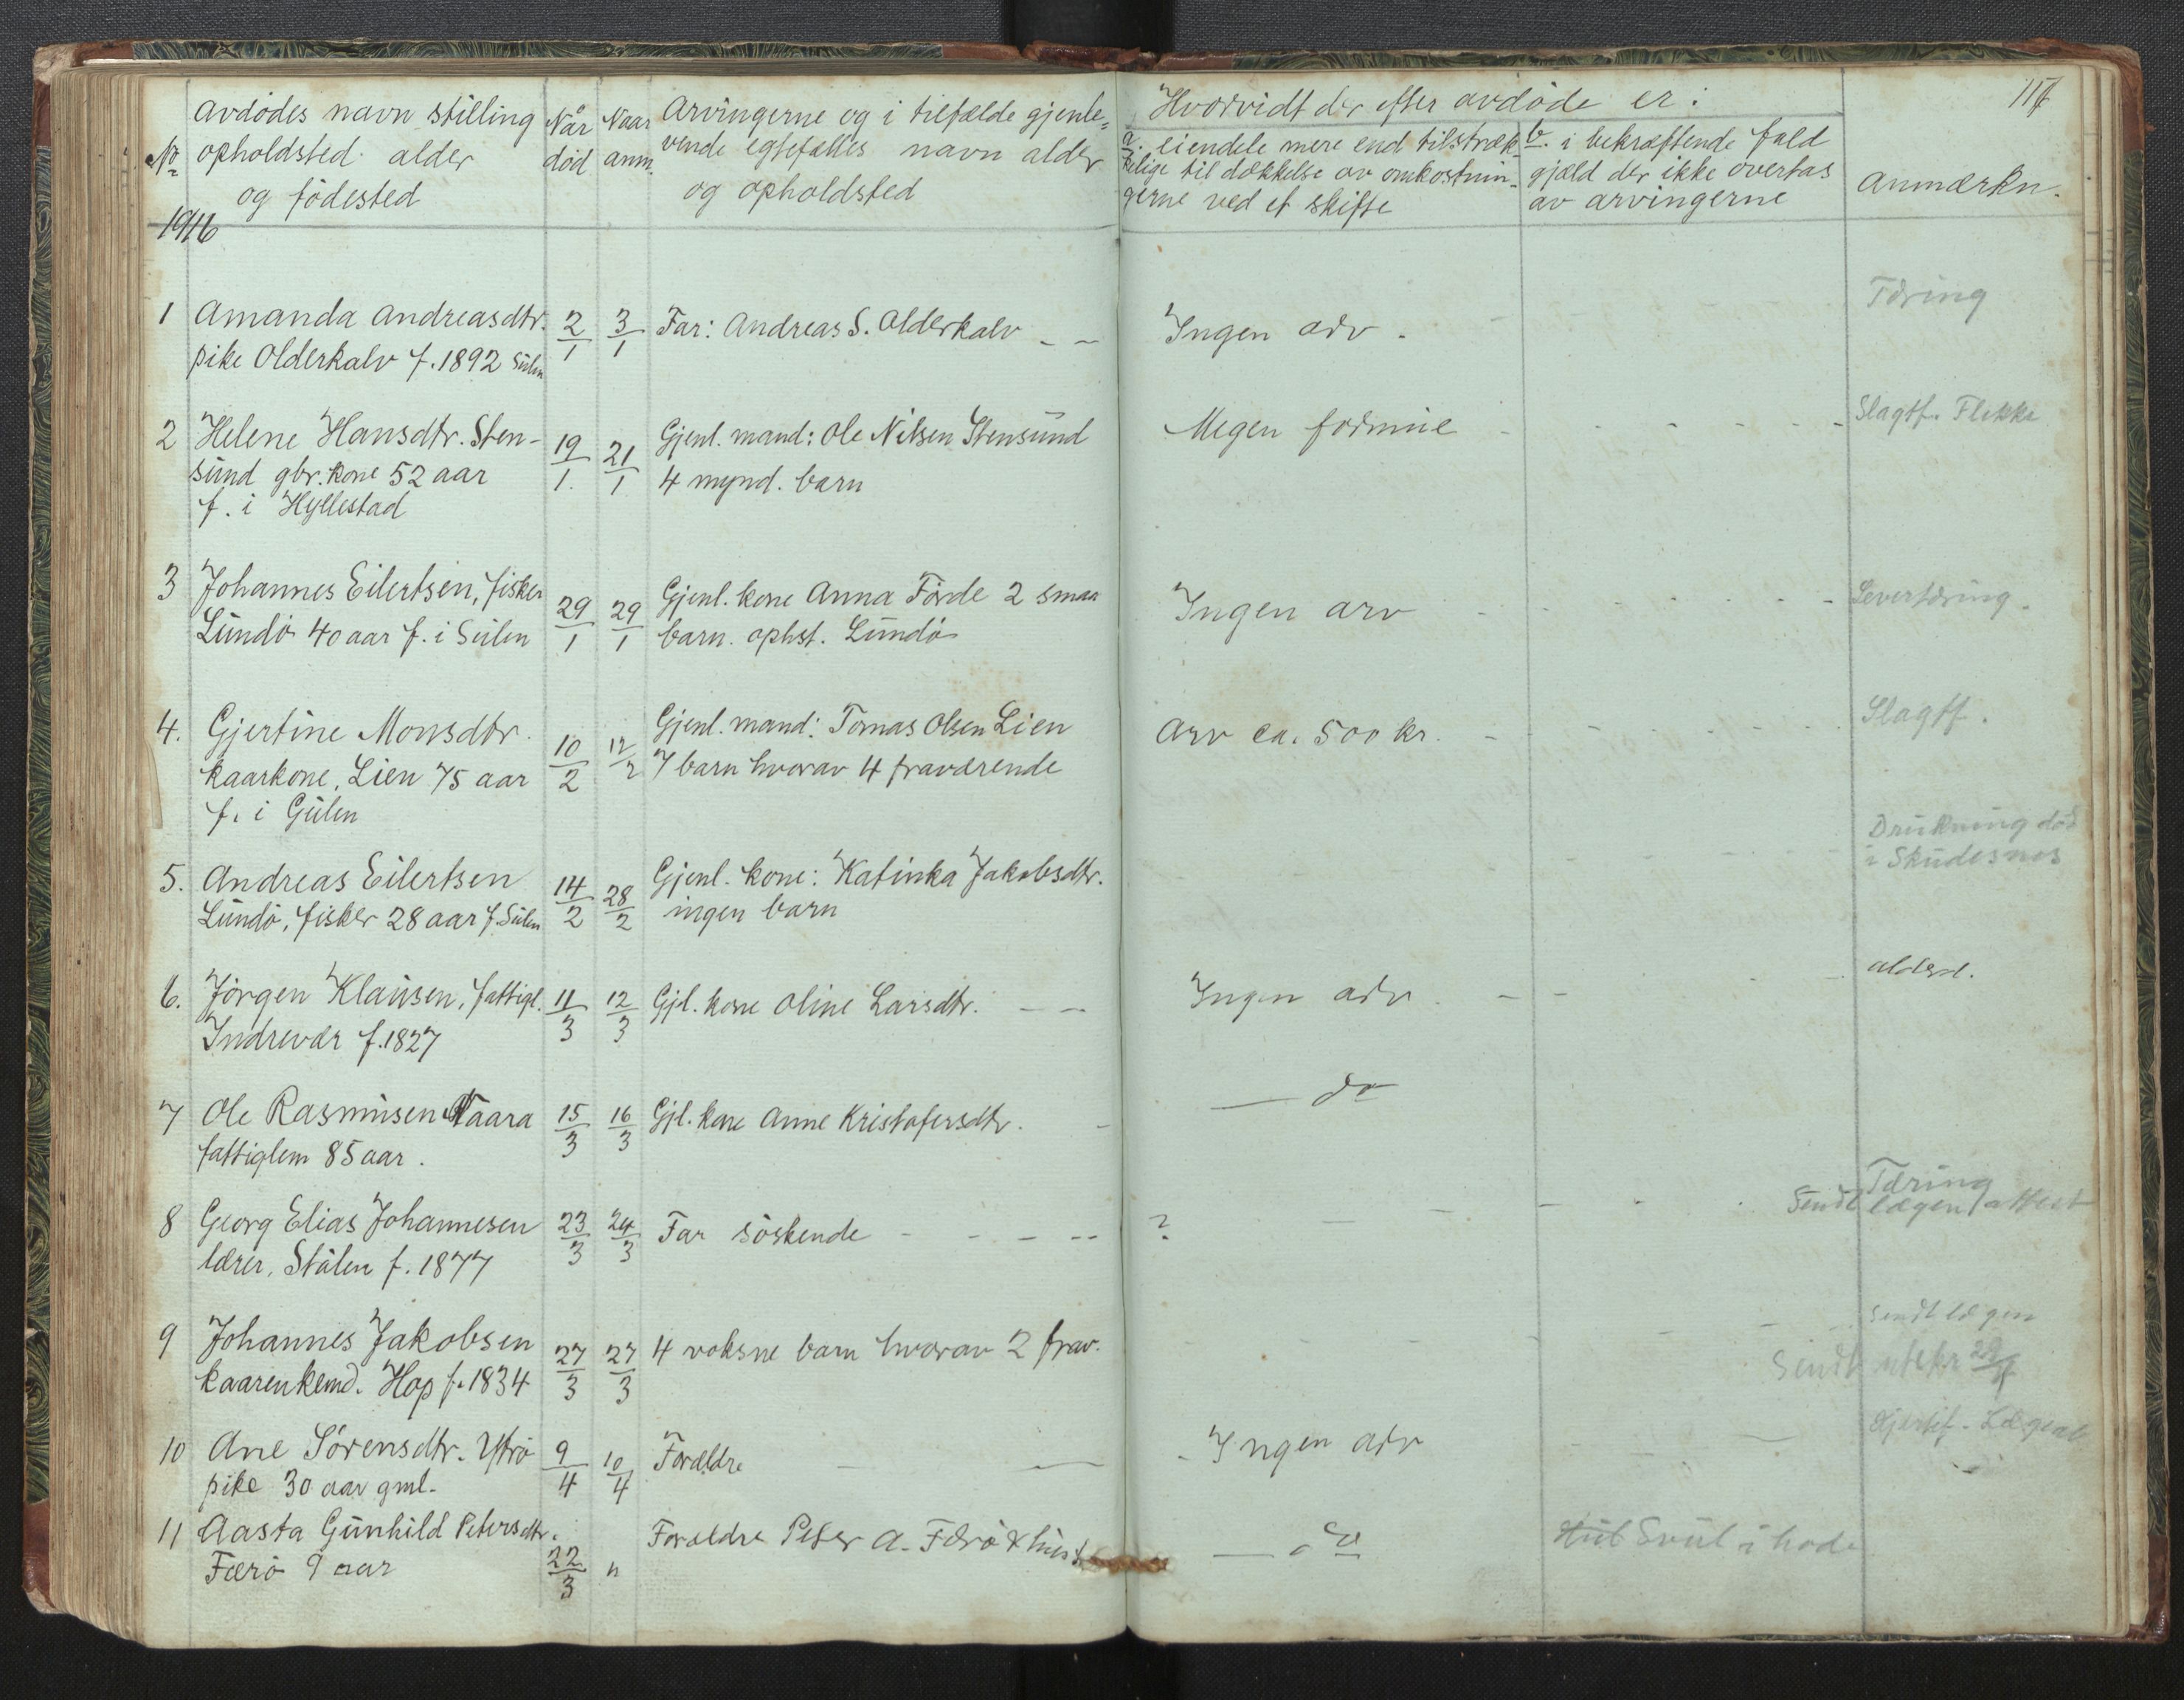 117
No
avdödes navn stilling
opholdsted alder
og födested
Når
död
Naar
anm.
Arvingerne og i tilfælde gjenle=
vende egtefælles navn alder
og opholdsted
Hvorvidt der efter avdöde er:
a. eiendele mere end tilstræk-
kelige til dækkelse av omkostnin-
gerne ved et skifte
b. i bekræftende fald
gjæld der ikke overtas
av arvingerne
Anmærkn.
1916
1 Amanda Andreasdtr.
pike Olderkalv f. 1892 Sulen
2/1
3/1
Far: Andreas S. Olderkalv
Ingen arv.
Tæring
2 Helene Hansdtr. Sten-
sund gbr. kone 52 aar
f. i Hyllestad
19/1.
21/1
Gjenl. mand: Ole Nilsen Stensund
4 mynd. barn
Megen formue
Slagtf. Flekke
3 Johannes Eilertsen, fisker
Lundö 40 aar f. i Sulen
29/1
29/1
Gjenl. kone Anna Förde 2 smaa
barn. ophst. Lundö
Ingen arv
Levertæring.
4. Gjertine Monsdtr.
kaarkone, Lien 75 aar
f. i Gulen
10/2
12/2
Gjenl. mand: Tomas Olsen Lien
7 barn hvorav 4 fraværende
Arv ca. 500 kr.
Slagtf.
5. Andreas Eilertsen
Lundö, fisker 28 aar f. Sulen
14/2
28/2
Gjenl. kone: Katinka Jakobsdtr.
ingen barn
Drukning död
i Skudesnes
6. Jörgen Klausen, fattigl.
Indrevær f. 1827
11/3
12/3
Gjl. kone Oline Larsdtr.
Ingen arv
alderd.
7 Ole Rasmusen Naara
fattiglem 85 aar.
15/3
16/3
Gjl. kone Anne Kristofersdtr.
— do —
8 Georg Elias Johannesen
lærer, Stålen f. 1877
23/3
24/3
Far söskende
?
Tæring
Sendt lægen attest
9 Johannes Jakobsen
kaarenkemd. Hop f. 1834
27/3
27/3
4 voksne barn hvorav 2 frav.
Sendt lægen
Sendt
10 Ane Sörensdtr. Ytrö
pike 30 aar gml.
9/4
10/4
Forældre
Ingen arv
11 Aasta Gunhild Petersdtr.
Færö 9 aar
22/3
"
Forældre Peter A. Færö & hust
— do
Svul i hode